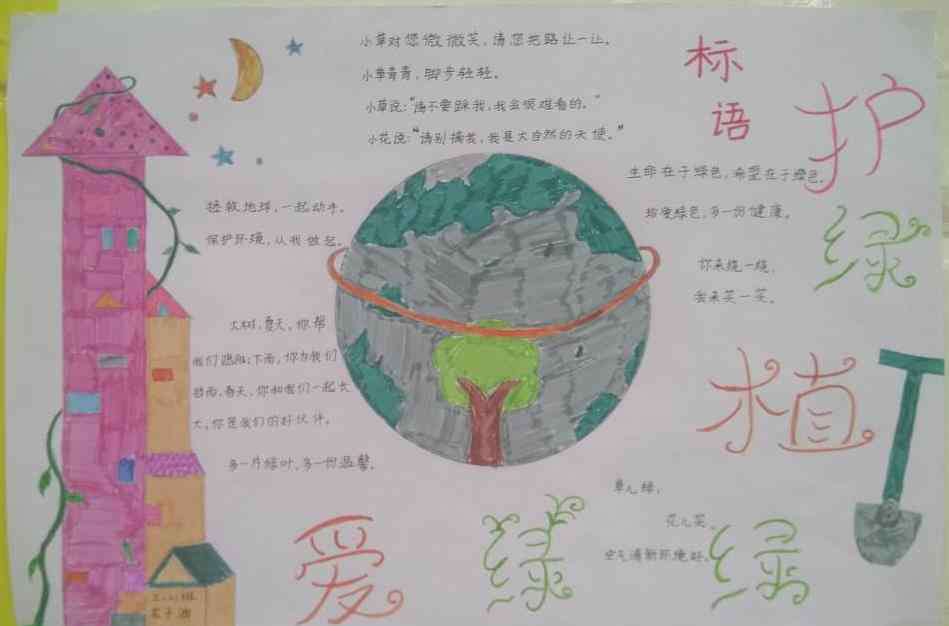 小草对您微微笑，请您把路让一让。
小草青青，脚步轻轻。
小草说：“请不要踩我，我会很难看的。”
小花说：“请别摘我，我是大自然的天使。”
标
语
护
绿
生命在于绿色，希望在于绿色。
珍爱绿色，多一份健康。
你来浇一浇，
我来笑一笑。
拯救地球，一起动手。
保护环境，从我做起。
大树，夏天，你帮
我们遮阳；下雨，你为我们
挡雨，春天，你和我们一起长
大，你是我们的好伙伴。
多一片绿叶，多一份温馨。
植
绿
草儿绿，
花儿笑，
空气清新环境好。
爱
绿